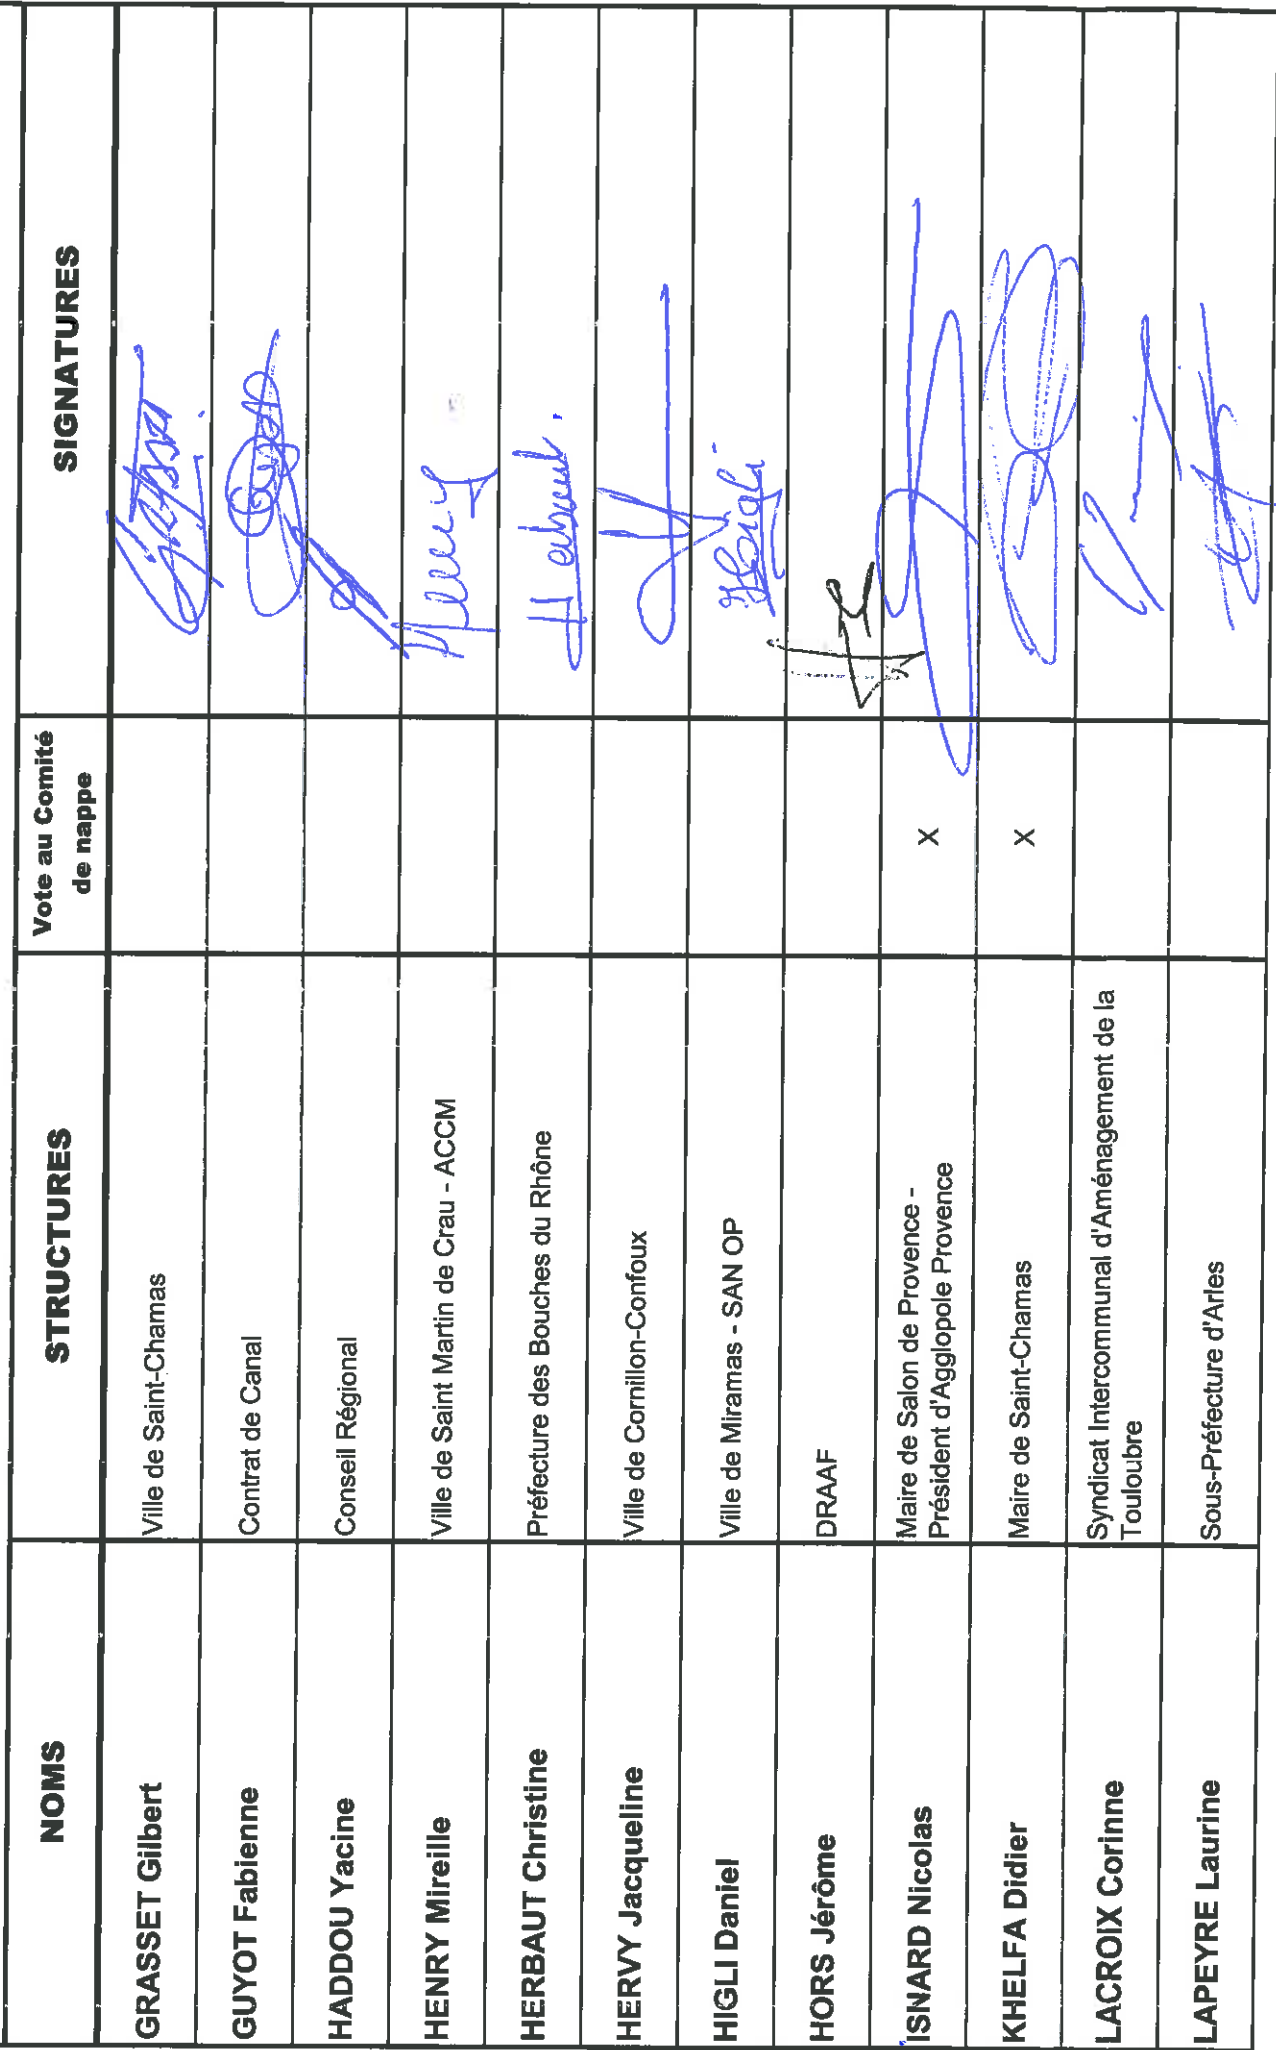 NOMS STRUCTURES Vote au Comité SIGNATURES
de nappe
GRASSET Gilbert Ville de Saint-Chamas Grasset
GUYOT Fabienne Contrat de Canal Guyot
HADDOU Yacine Conseil Régional
HENRY Mireille Ville de Saint Martin de Crau - ACCM Henry
HERBAUT Christine Préfecture des Bouches du Rhône Herbaut
HERVY Jacqueline Ville de Cornillon-Confoux
HIGLI Daniel Ville de Miramas - SAN OP Higli
HORS Jérôme DRAAF
ISNARD Nicolas Maire de Salon de Provence - X
Président d'Agglopole Provence
KHELFA Didier Maire de Saint-Chamas X
LACROIX Corinne Syndicat Intercommunal d'Aménagement de la
Touloubre
LAPEYRE Laurine Sous-Préfecture d'Arles